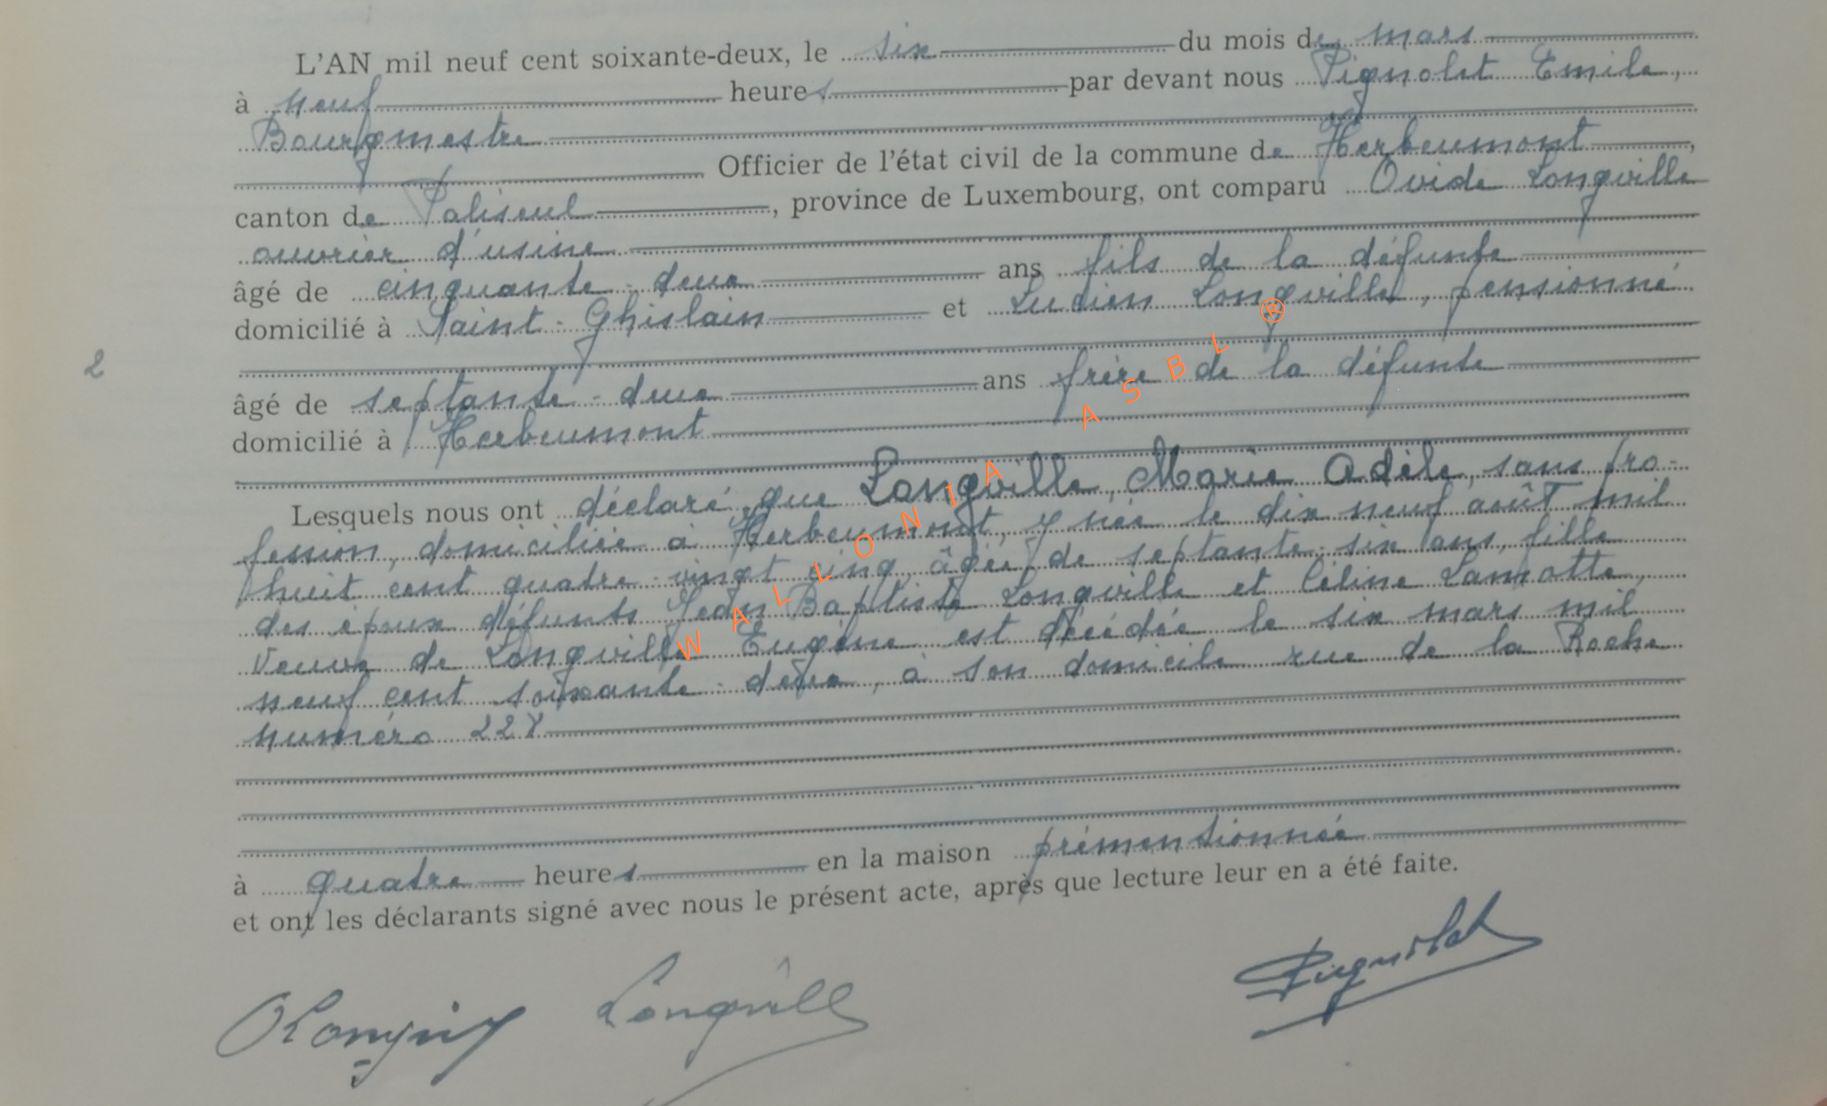 L'AN mil neuf cent soixante-deux, le six du mois de mars
à neuf heures par devant nous Pignolet Emile,
Bourgmestre
Officier de l'état civil de la commune de Herbeumont,
canton de Paliseul, province de Luxembourg, ont comparu Ovide Longville
ouvrier d'usine
âgé de cinquante-deux ans fils de la défunte
domicilié à Saint-Ghislain et Lucien Longville, pensionné
2
âgé de septante-deux ans frère de la défunte
domicilié à Herbeumont
Lesquels nous ont déclaré que Longville, Marie Adèle, sans pro-
fession, domiciliée à Herbeumont, y née le dix neuf août mil
huit cent quatre-vingt cinq, âgée de septante-six ans, fille
des époux défunts Jean Baptiste Longville et Céline Lamotte,
veuve de Longville Eugène est décédée le six mars mil
neuf cent soixante-deux, à son domicile rue de la Roche
numéro 227
à quatre heures en la maison prémentionnée
et ont les déclarants signé avec nous le présent acte, après que lecture leur en a été faite.
Longville Pignolet
WALLONIA ASBL ®